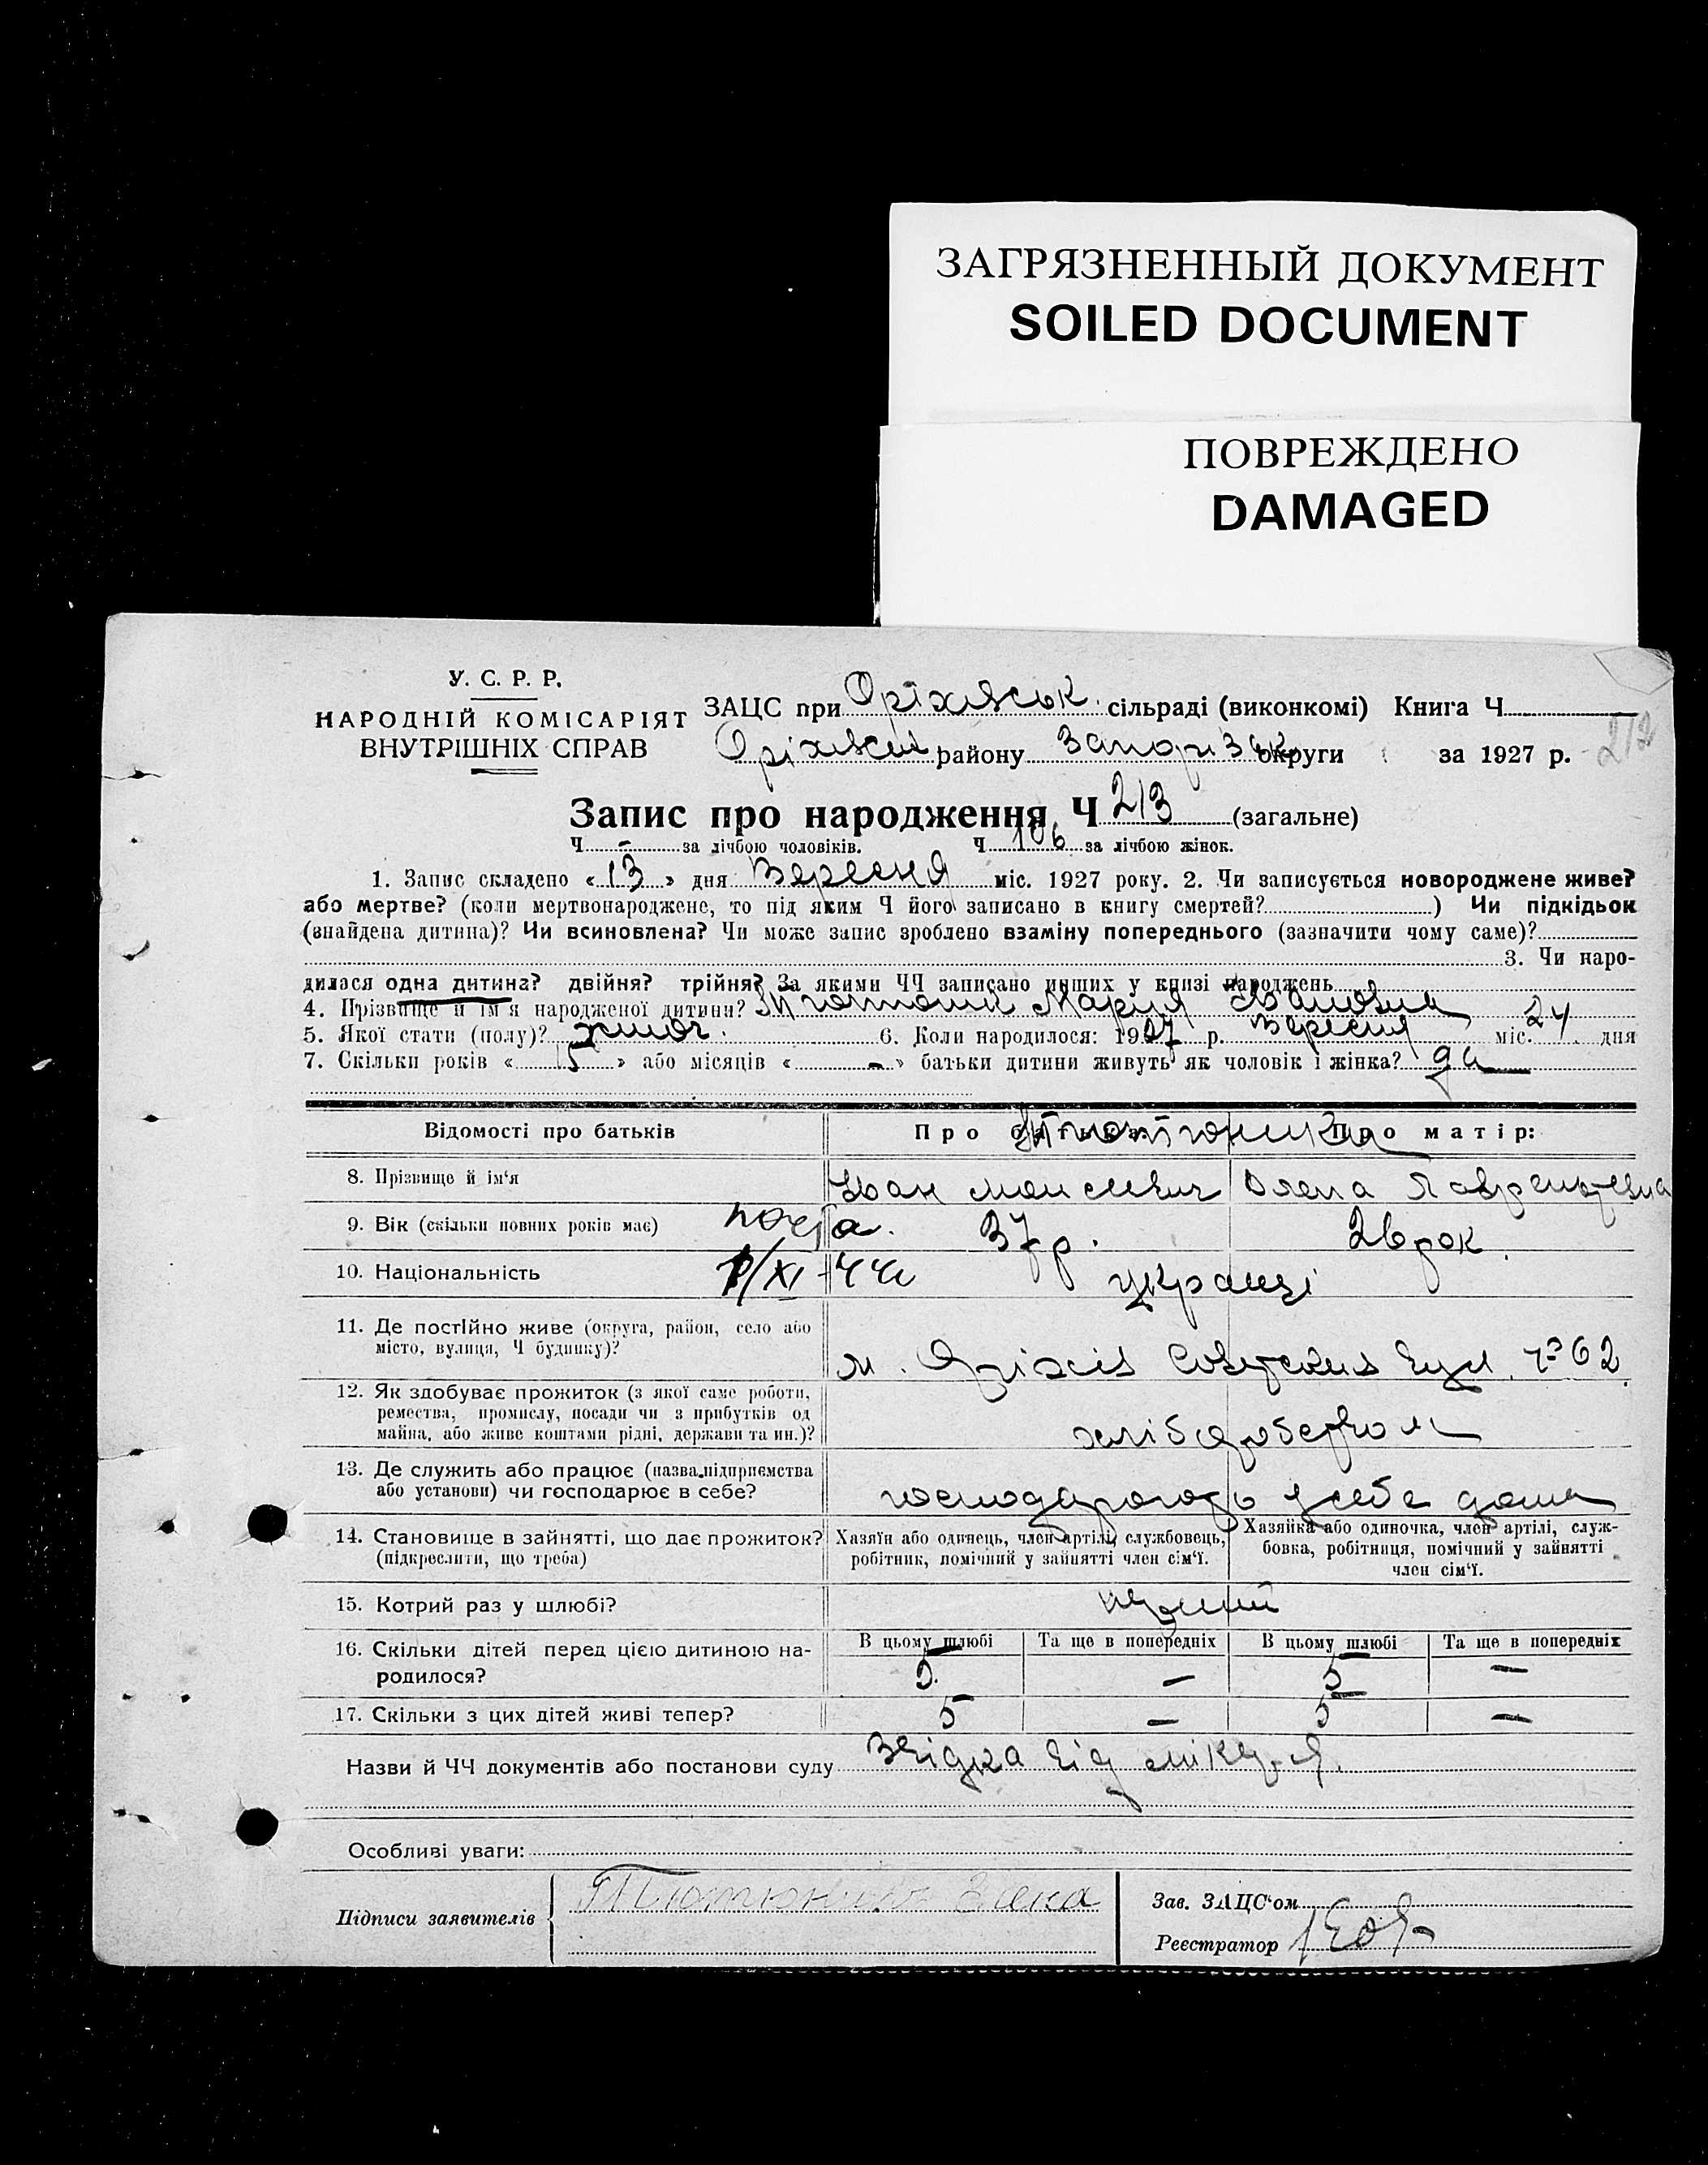 ЗАГРЯЗНЕННЫЙ ДОКУМЕНТ
SOILED DOCUMENT
ПОВРЕЖДЕНО
DAMAGED
У. С. Р. Р.
НАРОДНІЙ КОМІСАРІЯТ
ВНУТРІШНІХ СПРАВ
ЗАЦС при Оріхівськ. сільраді (виконкомі) Книга Ч
району Запоріз округи за 1927 р. 212
Запис про народження Ч 213 (загальне)
Ч - за лічбою чоловіків. Ч 106 за лічбою жінок.
1. Запис складено « 13 » дня Вересня міс. 1927 року. 2. Чи записується новороджене живе?
або мертве? (коли мертвонароджене, то під яким Ч його записано в книгу смертей? ) Чи підкідьок
(знайдена дитина)? Чи всиновлена? Чи може запис зроблено взаміну попереднього (зазначити чому саме)?
3. Чи наро-
дилася одна дитина? двійня? трійня? За якими ЧЧ записано инших у книзі народжень
4. Прізвище й ім'я народженої дитини? Мария
5. Якої статі (полу)? жіноч. 6. Коли народилося: 1927 р. Вересня міс. 24 дня
7. Скільки років « 15 » або місяців « - » батьки дитини живуть як чоловік і жінка? да
Відомості про батьків Про батька: Про матір:
8. Прізвище й ім'я Іван Олена
9. Вік (скільки повних років має) 37 р. 26 рок.
10. Національність українці
11. Де постійно живе (округа, район, село або
місто, вулиця, Ч будинку)?
м. Оріхів вул. 62
12. Як здобуває прожиток (з якої саме роботи,
ремества, промислу, посади чи з прибутків од
майна, або живе коштами рідні, держави та ин.)?
хліборобством
13. Де служить або працює (назва підприємства
або установи) чи господарює в себе?
у себе дома
14. Становище в зайнятті, що дає прожиток?
(підкреслити, що треба)
Хазяїн або одинець, член артілі, службовець,
робітник, помічний у зайнятті член сім'ї.
Хазяйка або одиночка, член артілі, служ-
бовка, робітниця, помічний у зайнятті
член сім'ї.
15. Котрий раз у шлюбі?
16. Скільки дітей перед цією дитиною на-
родилося?
В цьому шлюбі Та ще в попередніх В цьому шлюбі Та ще в попередніх
5 - 5 -
17. Скільки з цих дітей живі тепер? 5 - 5 -
Назви й ЧЧ документів або постанови суду від
Особливі уваги:
Підписи заявителів
Зав. ЗАЦС'ом
Реєстратор